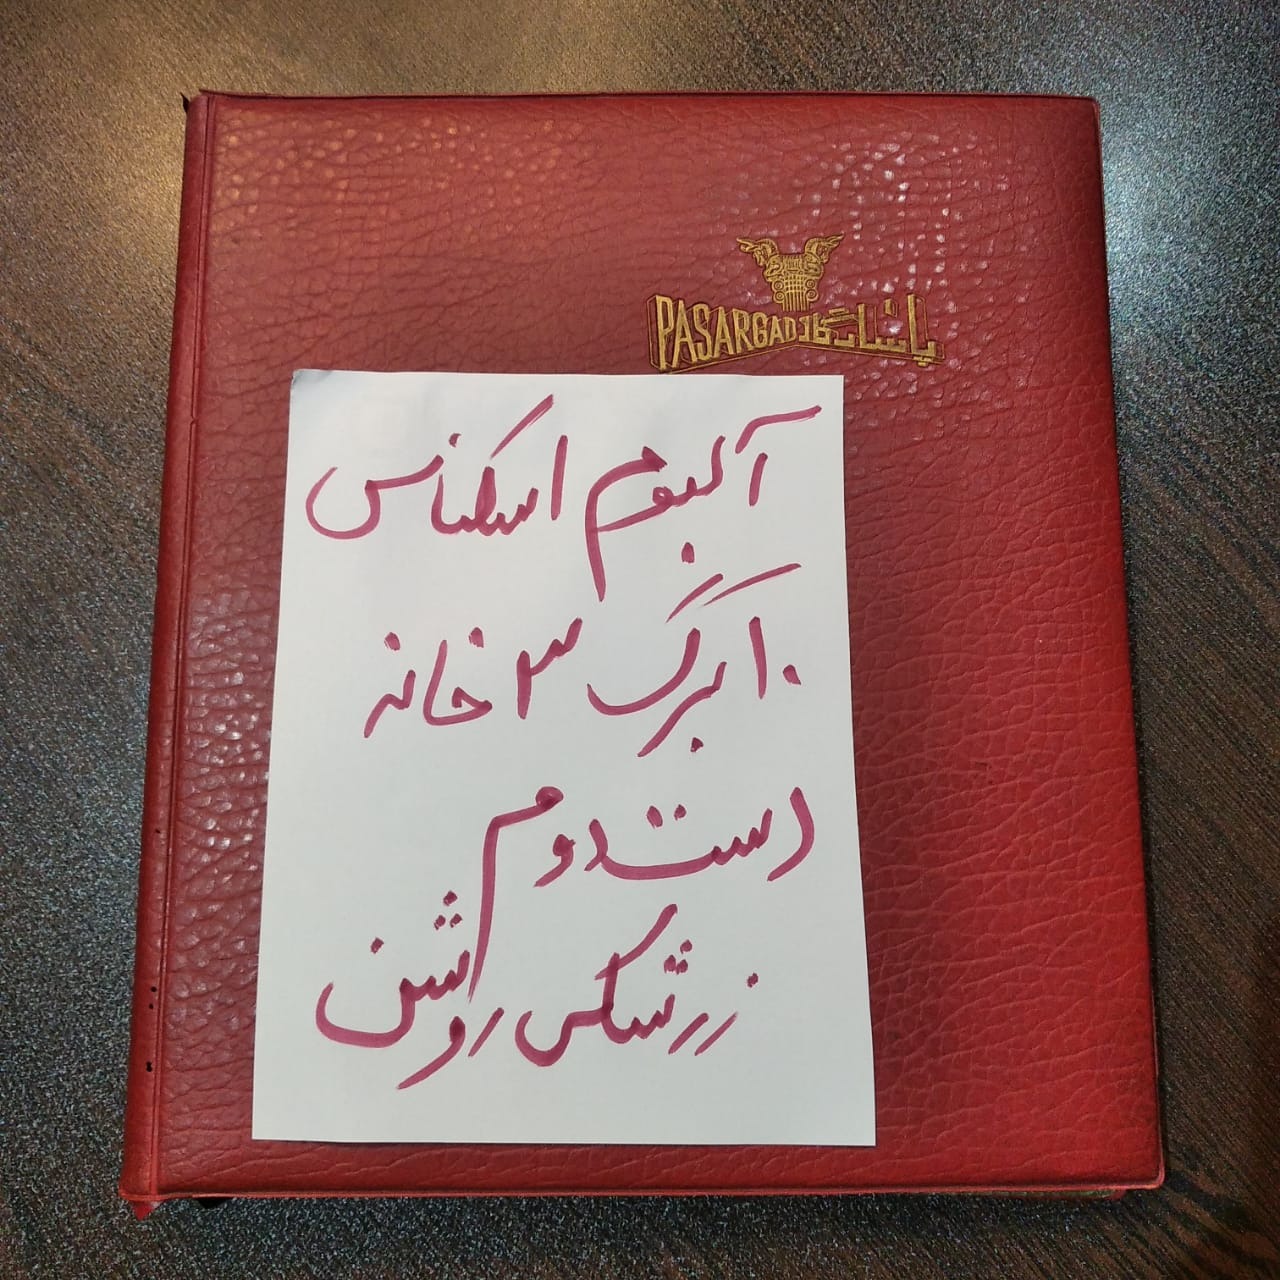 PASARGAD پاسارگاد
آلبوم اسکناس
۱۰ برگ ۳ خانه
دست دوم
زرشکی روشن